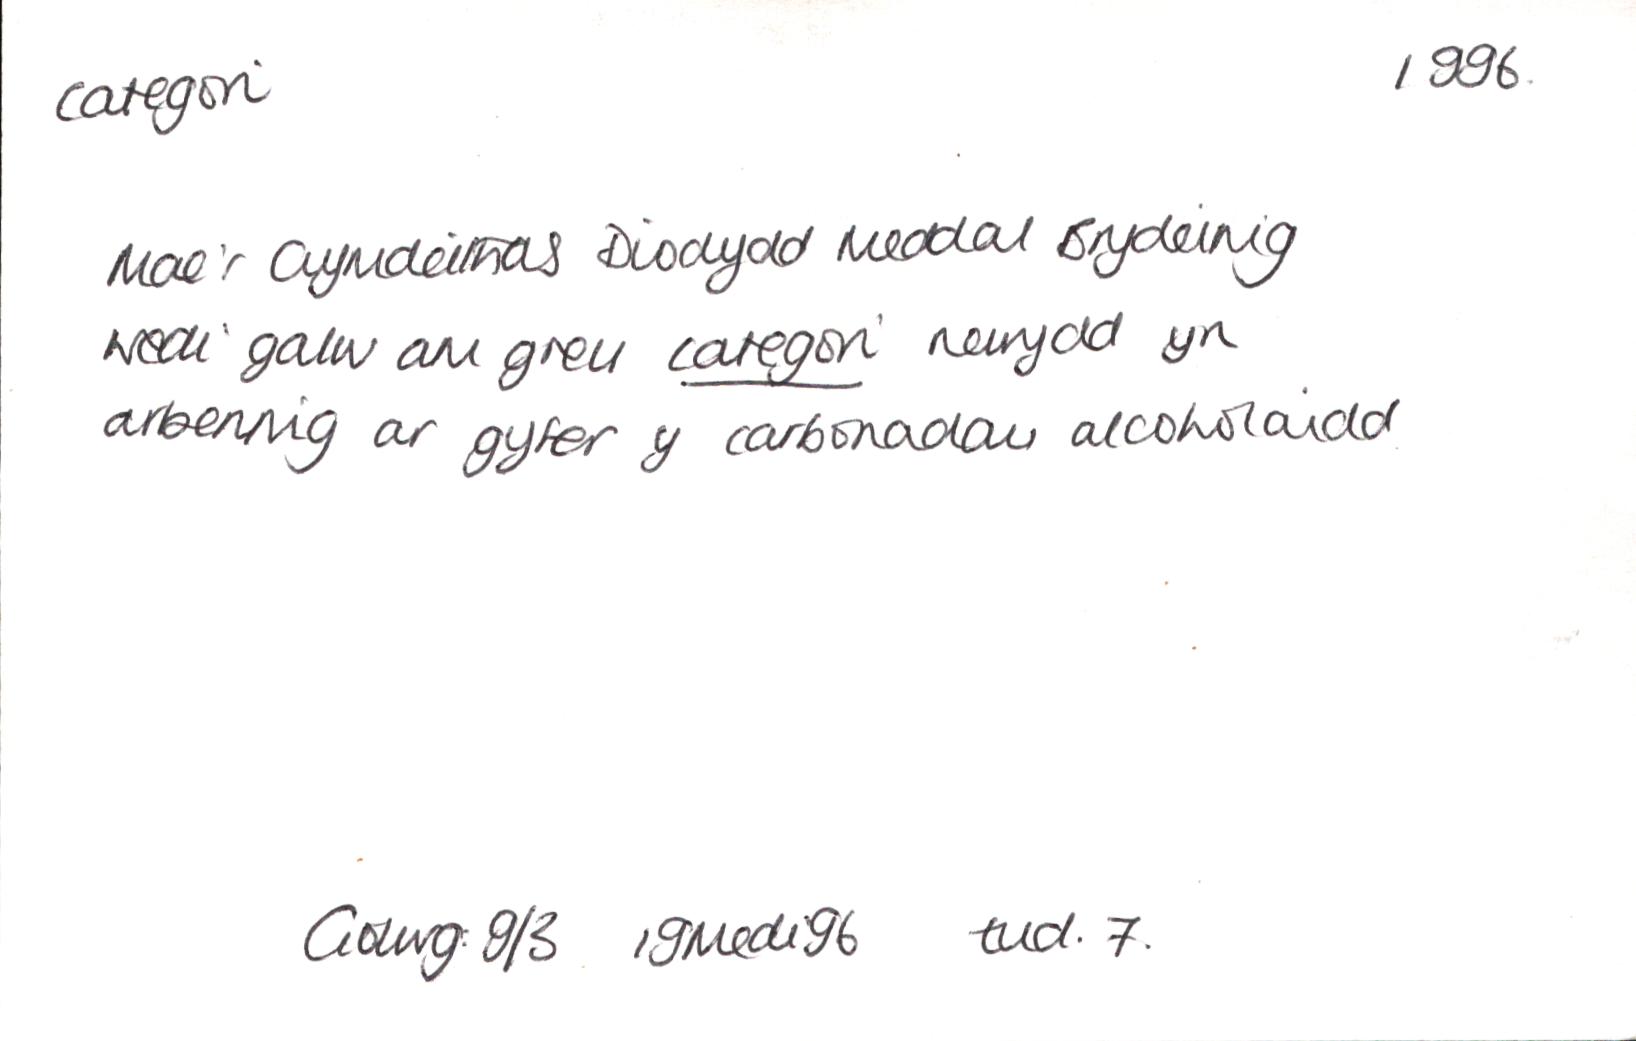 categori 1996.
Mae'r Gymdeithas Diodydd Meddal Brydeinig
wedi galw am greu categori newydd yn
arbennig ar gyfer y carbonadau alcoholaidd
Golwg 9/3 19 Medi 96 tud. 7.